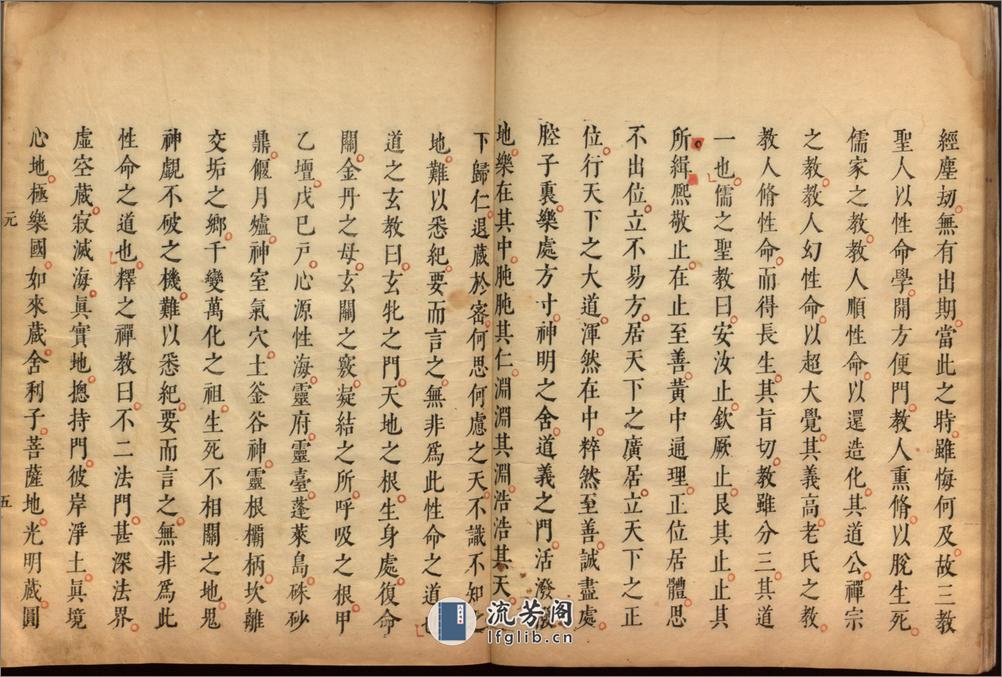 經塵刼無有出期當此之時雖悔何及故三教
聖人以性命學開方便門教人熏脩以脫生死
儒家之教教人順性命以還造化其道公禪宗
之教教人幻性命以超大覺其義高老氏之教
教人脩性命而得長生其旨切教雖分三其道
一也儒之聖教曰安汝止欽厥止艮其止止其
所緝熙敬止在止至善黃中通理正位居體思
不出位立不易方居天下之廣居立天下之正
位行天下之大道渾然在中粹然至善誠盡處
腔子裏樂處方寸神明之舍道義之門活潑
地樂在其中肫肫其仁淵淵其淵浩浩其天
下歸仁退藏於密何思何慮之天不識不知之
地難以悉紀要而言之無非爲此性命之道
道之玄教曰玄牝之門天地之根生身處復命
關金丹之母玄關之竅凝結之所呼吸之根甲
乙壇戊巳戸心源性海靈府靈臺蓬萊島硃砂
鼎偃月爐神室氣穴土釜谷神靈根欛柄坎離
交垢之鄉千變萬化之祖生死不相關之地鬼
神覷不破之機難以悉紀要而言之無非爲此
性命之道也釋之禪教曰不二法門甚深法界
虛空藏寂滅海眞實地摠持門彼岸淨土眞境
心地極樂國如來藏舍利子菩薩地光明藏圓
元
五
流芳阁
lfglib.cn